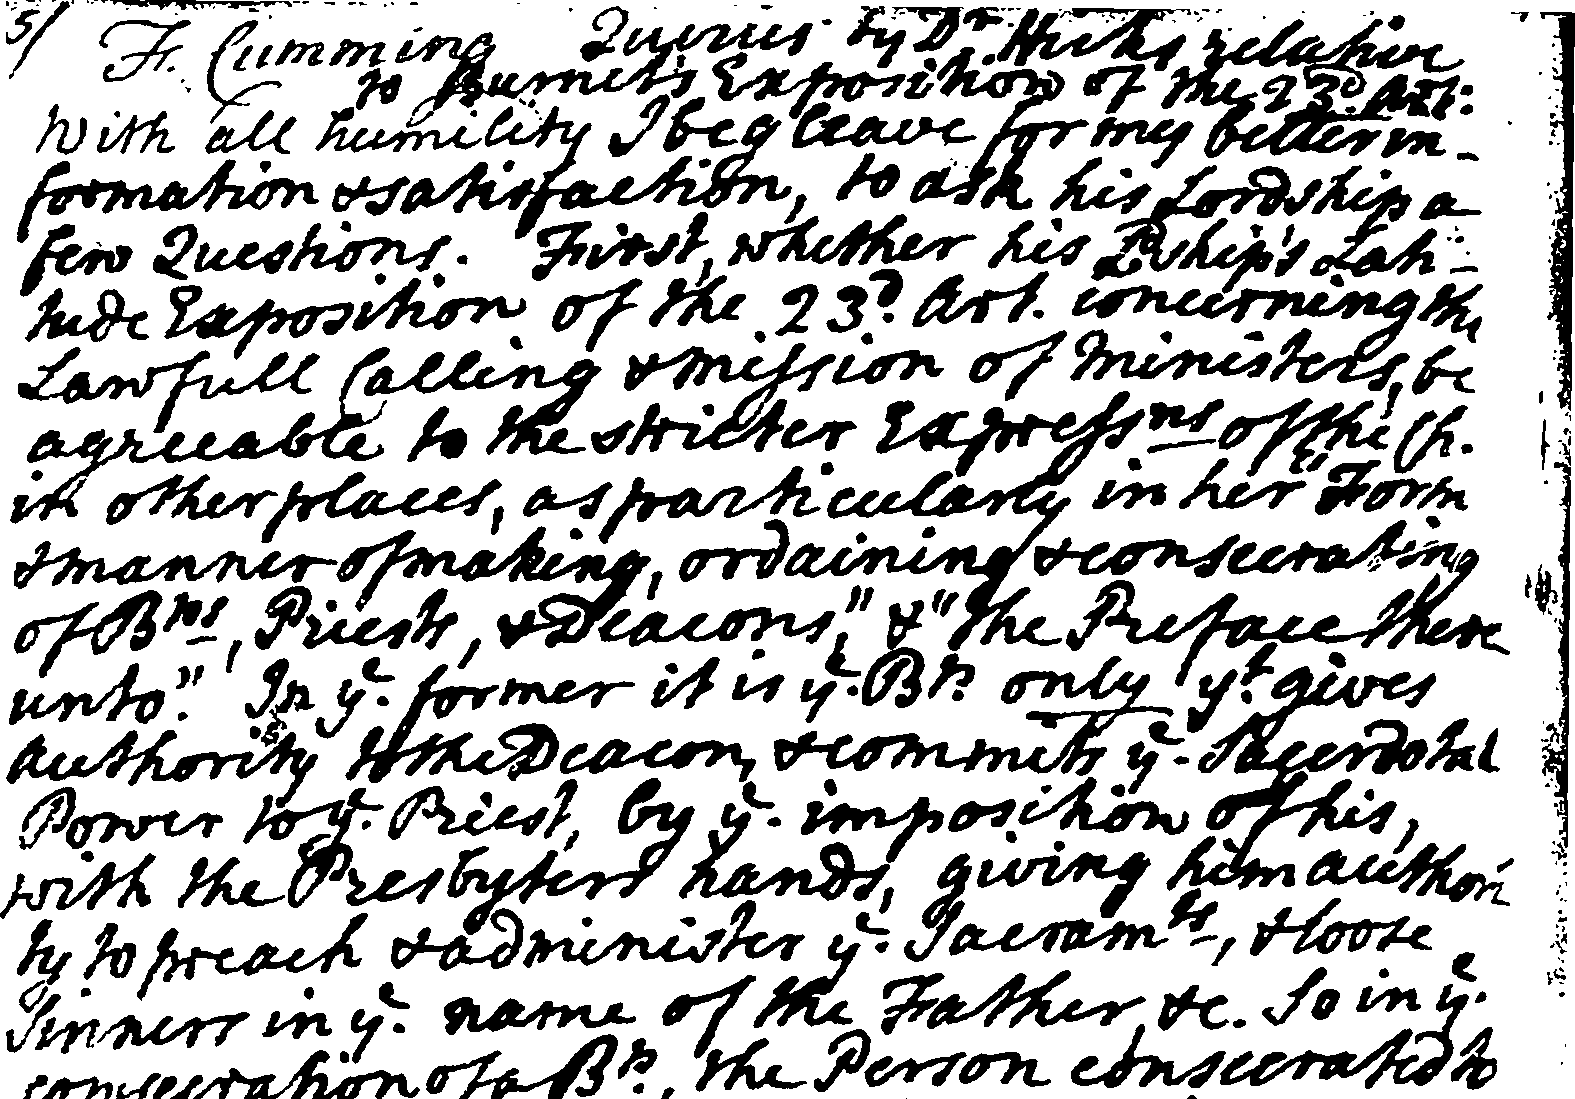 5/ Fr. Cumming Queries by Dr. Hicks relative
to Burnet's Exposition of the 23d. Art:
With all humility I beg leave for my better in-
formation & satisfaction, to ask his Lordship a
few Questions. First, whether his Ldship's Lati-
tude Exposition of the 23d. Art. concerning the
Lawfull Calling & Mission of Ministers, be
agreeable to the stricter Expressns of the Ch.
in other places, as particularly in her "Form
& manner of making, ordaining & consecrating
of Bps, Priests, & Deacons," & "the Preface there
unto." In ye. former it is ye. Bp. only yt. gives
authority to the Deacon, & commits ye. Sacerdotal
Power to ye. Priest, by ye. imposition of his,
with the Presbyters hands, giving him authori
ty to preach & administer ye. Sacramts, & loose
Sinners in ye. name of the Father, &c. So in ye.
consecration of a Bp., the Person consecrated to